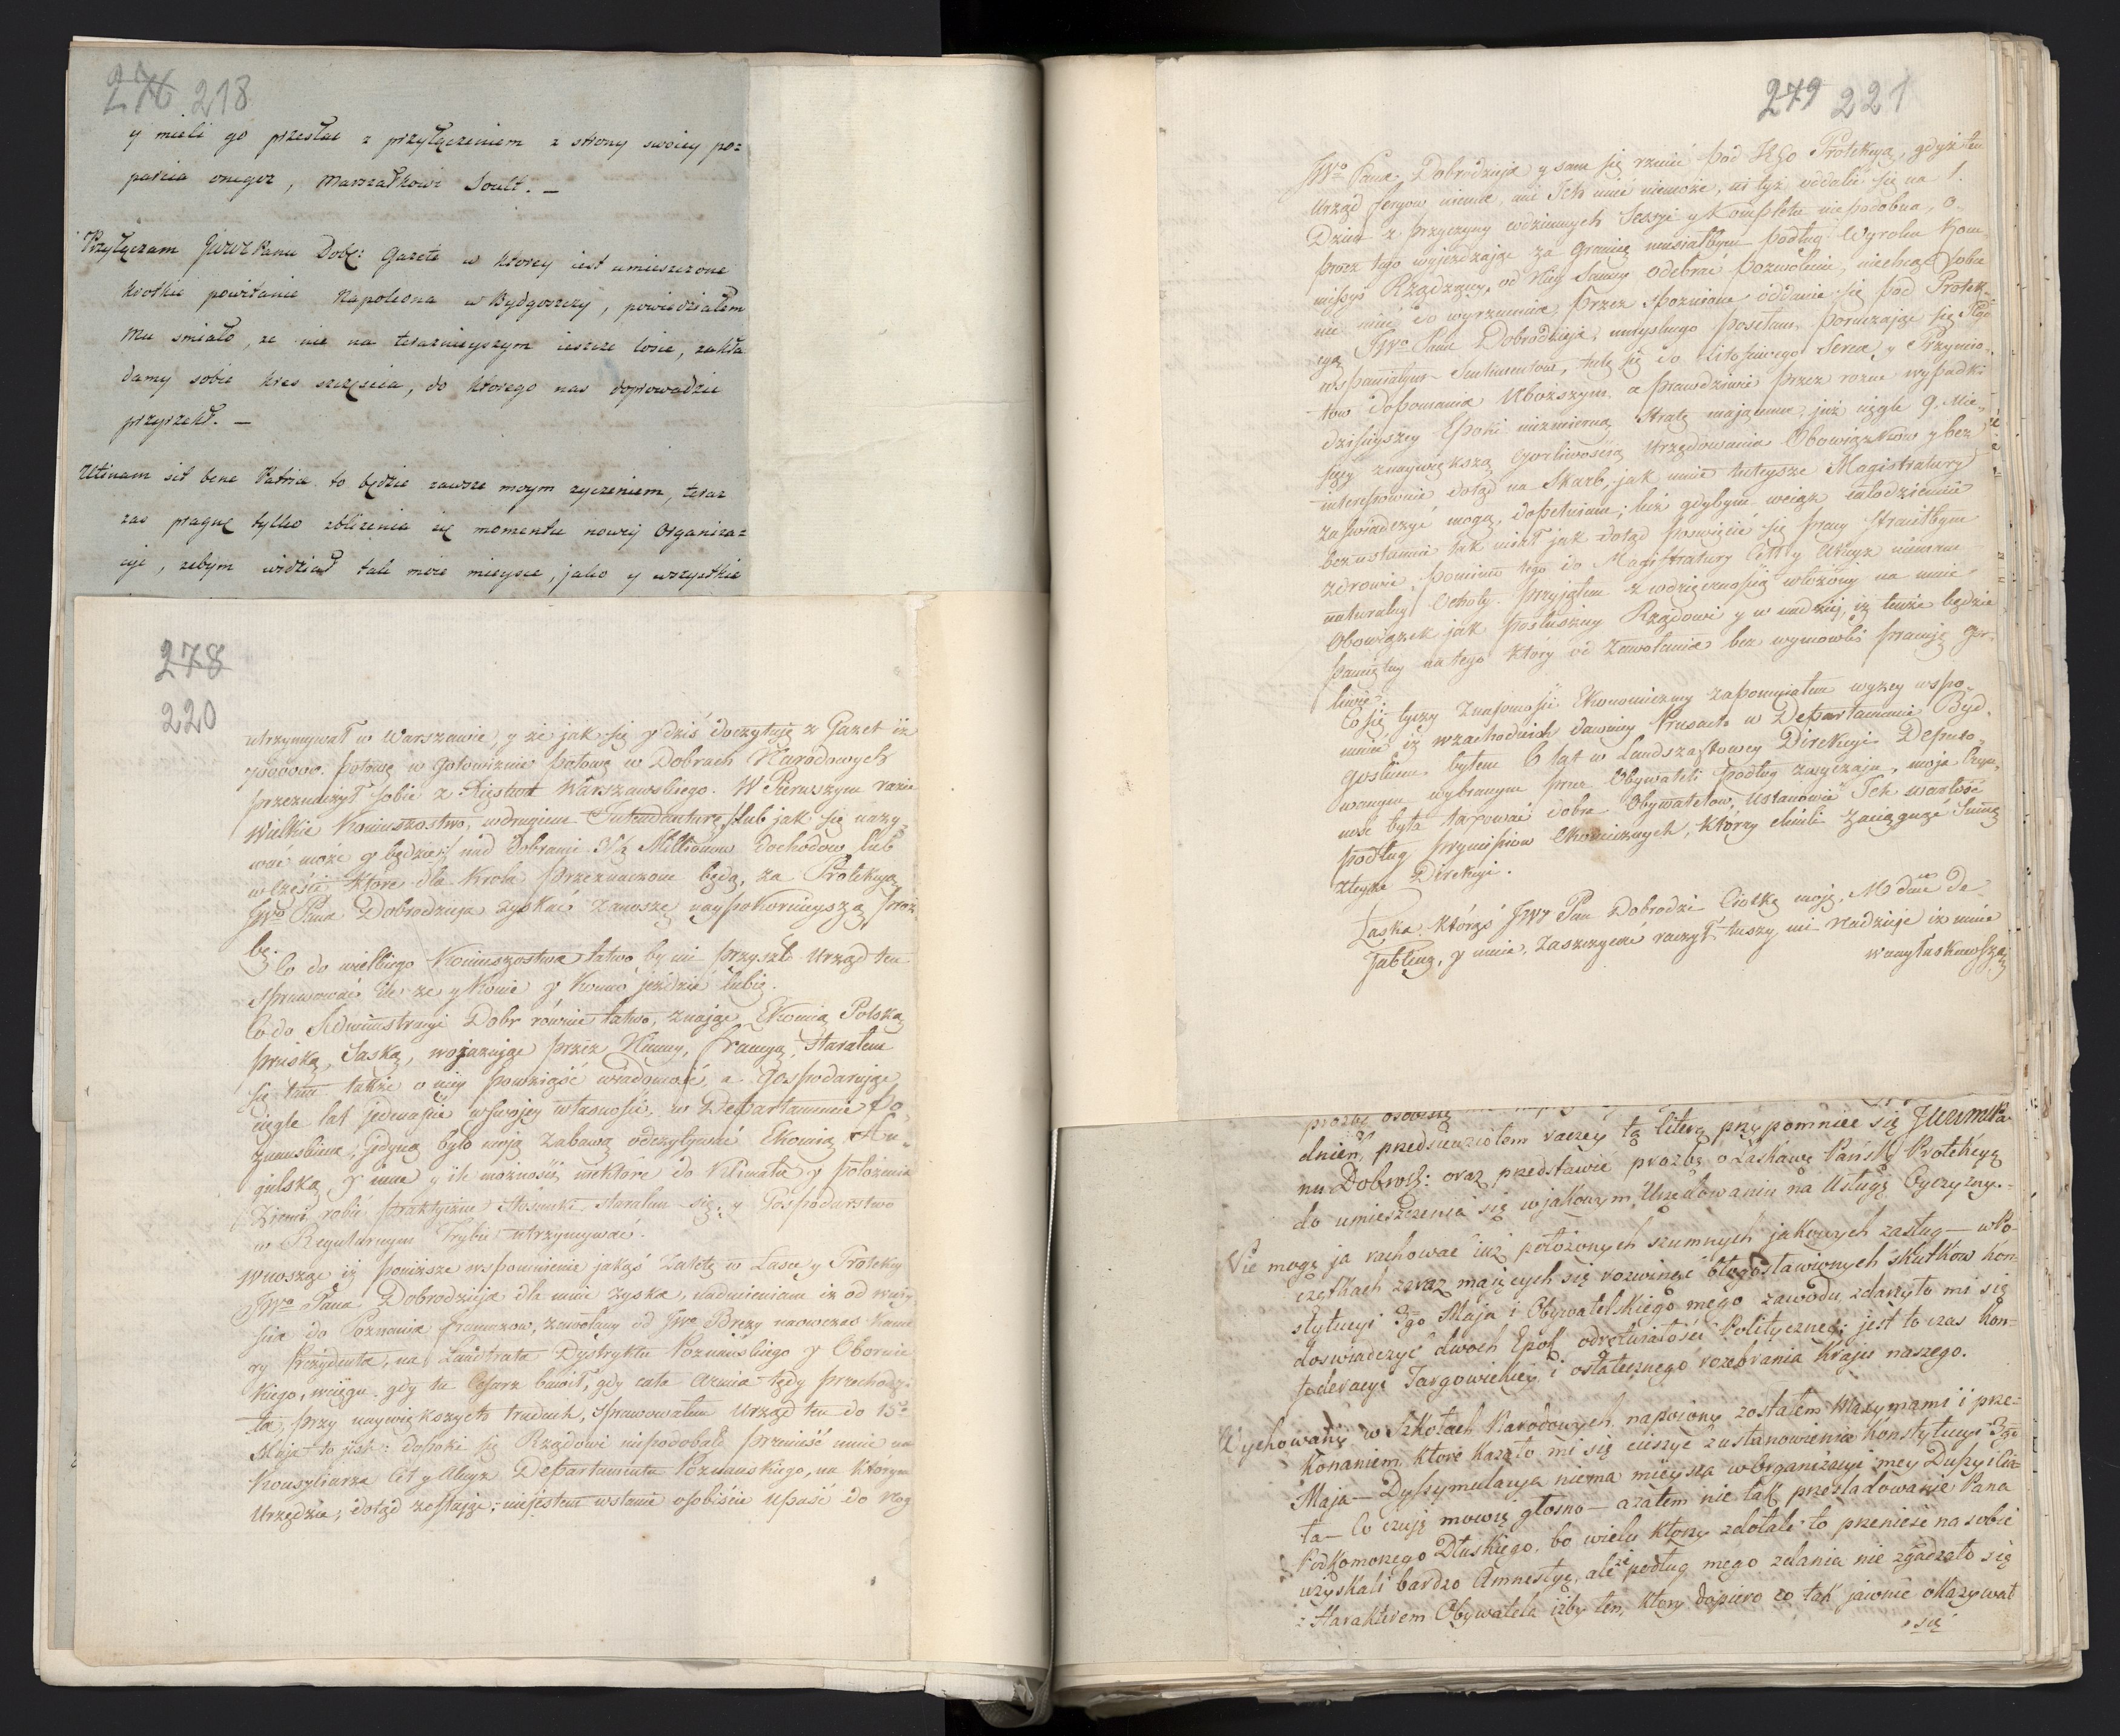 276 218
y mieli go przesłać z przyłączeniem z strony swoiey po=
parcia onegoz, Marszałkowi Soult. —
Przyłączam JWWPanu Dob: Gazetę w ktorey iest umieszczone
krotkie powitanie Napoleona w Bydgoszczy, powiedziałem
mu smiało, ze nie na teraznieyszym ieszcze losie, zakła
damy sobie kres szczęscia, do ktorego nas doprowadzić
przyrzekł. —
Utinam sit bene Patriæ to będzie zawsze moym zyczeniem, teraz
zas pragnę tylko zblizenia się momentu nowey Organiza=
cyi, zebym widział tak moie mieysce, jako y wszystkie
278
220
utrzymywał w Warszawie, y że jak się y dziś doczytuję z Gazet iż
7000000. połowę w gotowiznie połowę w Dobrach Narodowych
przeznaczył sobie z Xięstwa Warszawskiego. W Pierwszym razie
Wielkie Koniuszostwo, w drugim Intendanturę, lub jak się nazy
wać może y będzie, nad Dobrami 3½ Millionow dochodow lub
w części które dla Krola przeznaczone będą, za Protekcyą
JWo Pana Dobrodzieja zyskać zanoszę naypokornieyszą proź
bę.
Co do wielkiego Koniuszostwa łatwo by mi przyszło Urząd ten
sprawować ile że y konie y konno jeździć lubię.
Co do Administracyi Dobr rownie łatwo, znając Ekonią Polską
Pruską, Saską, wojażując przez Niemcy, Francyą, starałem
się tam także o niey powziąść wiadomość, a Gospodarując
ciągle lat jedenaście w swojey własności, w Departamencie Po
znanskim, jedyną było moją zabawą odczytywać Ekonią An=
gielską y inne y ile możności niektóre do Klimatu y położenia
Ziemi robić praktycznie stosunki starałem się, y Gospodarstwo
w Regularnym Trybie utrzymywać.
Wnosząc iż ponizsze wspomnienie jakąś Zaletę w Łasce y Protekcyi
JWo Pana Dobrodzieja dla mnie zyska, nadmieniam iż od weyś
ścia do Poznania francuzow, zawołany od JWo Brezy naowczas Kame
ry Prezydenta, na Landtrata Dystryktu Poznanskiego y Obornic
kiego, w ciągu gdy tu Cesarz bawił, gdy cała Armia tędy przechodzi
ła, przy naywiększych trudach, sprawowałem Urząd ten do 15go
Maja to jest: dopoki się Rządowi niepodobało przenieść mnie na
Konsyliarza Ceł y Akcyz Departamentu Poznanskiego, na którym
Urzędzie, dotąd zostając; niejestem w stanie osobiście upaść do Nog
279 221
JWo Pana Dobrodzieja y sam się rzucić pod Jego Protekcyą, gdyż ten
Urząd feryow niema, ani Ich mieć niemoże, ni tyż oddalić się na 1.
Dzień z przyczyny codziennych Sessyi y Kompletu niepodobna, o=
procz tego wyjeżdżając za granicę musiałbym podług Wyroku Kom
missyi Rządzącey, od Niey Samey odebrać pozwolenie, niechcąc sobie
nic mieć do wyrzucenia, przez spoznione oddanie się pod Protek=
cyą JWo Pana Dobrodzieja, umyslnego posełam, poruczając się Jego
wspaniałym Sentimentom, tulę się do Litosciwego Serca, y Przymio=
tow dopomania Uboższym, a prawdziwie przez rozne wypadki
dzisieyszey Epoki niezmierną Stratę mającemu, już ciągle 9. Mie=
sięcy z naywiększą Gorliwością Urzędowania Obowiązkow y bez
interessownie dotąd na Skarb, jak mnie tuteysze Magistratury
zaświadczyć mogą, dopełniam; lecz gdybym wciąż całodziennie
bezustannie tak miał jak dotąd poswięcić się pracy straciłbym
zdrowie, pomimo tego do Magistratury Ceł y Akcyz niemam
naturalney Ochoty. Przyjąłem z wdzięcznością włożony na mnie
Obowiązek jak posłuszny Rządowi y w nadziei, iż tenże będzie
pamiętny na tego który od zawołania bez wymowki pracuje gor=
liwie.
Co się tyczy Znajomości Ekonomiczney zapomniałem wyżey wspo=
mnieć, iż w zachodnich dawniey Prusach w Departamencie Byd=
goskim, byłem 6 lat w Landszaftowey Direkcyi Deputo=
wanym wybranym przez Obywateli podług zwyczaju, moja Czyn=
ność była taxować dobra Obywatelow, Ustanowić Ich wartość
podług prynsipiow Ekonomicznych, którzy chcieli zaciągnąć Summę
z teyże Direkcyi.
Łaska którąś JWo Pan Dobrodzi Ciotkę moją, Mdme de
Jabłeną, y mnie, zaszczycać raczył tuszy mi Nadzieję iż mnie
w nayłaskawszą
prozbę osobistą
dnień, przedsiewziołem raczey tą literą przypomnieć się JWWMPa
nu Dobrodz: oraz przedstawić proźbę o Łaskawę Pańsk Protekcyą
do umieszczenia się w jakowym Urzędowaniu na Usługę Oyczyzny. -
Nie mogę ja rachować już położonych szumnych jakowych zasług — w Po=
czątkach zaraz mających się rozwinąć błogosławionych skutkow Kon
stytucyi 3go Maja i Obywatelskiego mego zawodu, zdarzyło mi się
doswiadczyć dwoch Epok odrętwiałości Polityczney: jest to czas Kon=
federacyi Targowickiey i ostatecznego rozebrania Kraju naszego.
Wychowany w Szkołach Narodowych, napoiony zostałem Maxymami i prze=
konaniem, które kazało mi się cieszyć z ustanowienia Konstytucyi 3go
Maja — Dyssymulacya niema mieysca w Organizacyi mey Duszy i Cia
ła — Co czuję mowię głosno — a zatem nie tak prześladowanie Pana
Podkomorzego Dłuskiego, bo wielu którzy zdołali to przenieść na sobie
uzyskali bardzo Amnestyę, ale że podług mego zdania nie zgadzało się
z Harakterem Obywatela iżby ten, który dopiero co tak jawnie okazywał
się